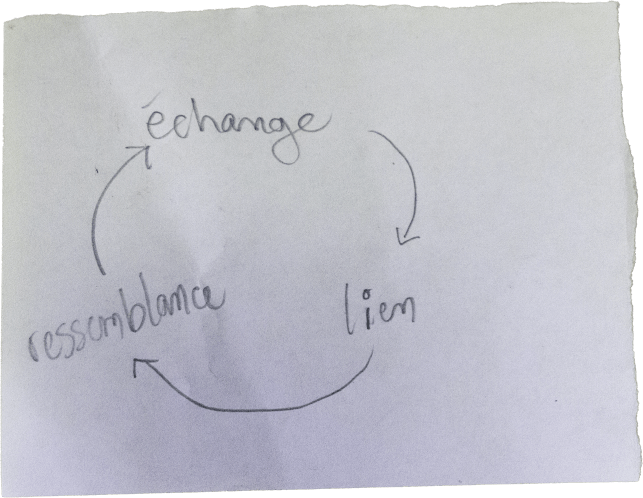 échange
lien
ressemblance